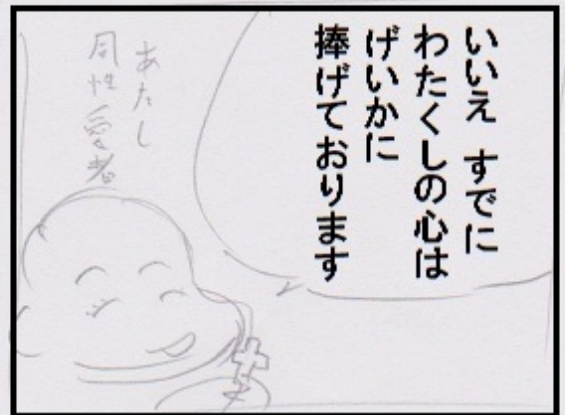 いいえ すでに
わたくしの心は
げいかに
捧げております
あたし
同性愛者